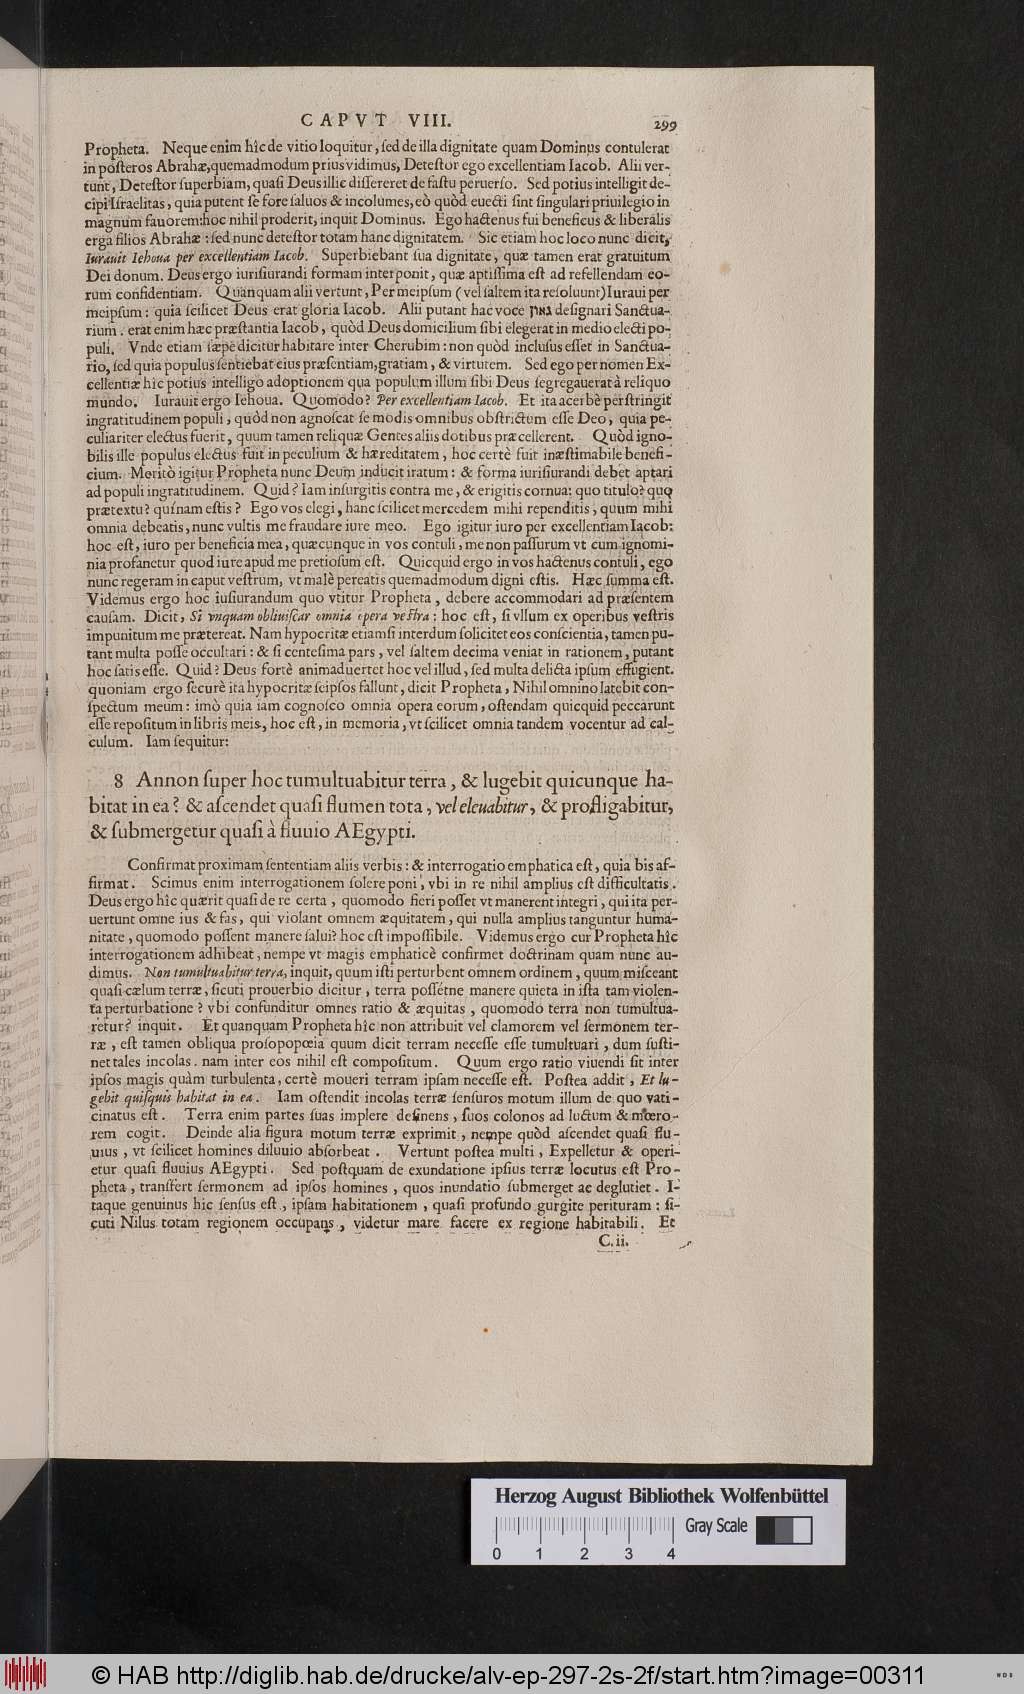 CAPVT VIII. 299
Propheta. Neque enim hîc de vitio loquitur, ſed de illa dignitate quam Dominus contulerat
in poſteros Abrahæ, quemadmodum prius vidimus, Deteſtor ego excellentiam Iacob. Alii ver-
tunt, Deteſtor ſuperbiam, quaſi Deus illîc diſſereret de faſtu peruerſo. Sed potius intelligit de-
cipi Iſraelitas, quia putent ſe fore ſaluos & incolumes, eò quòd euecti ſint ſingulari priuilegio in
magnum fauorem: hoc nihil proderit, inquit Dominus. Ego hactenus fui beneficus & liberalis
erga filios Abrahæ: ſed nunc deteſtor totam hanc dignitatem. Sic etiam hoc loco nunc dicit,
Iurauit Iehoua per excellentiam Iacob. Superbiebant ſua dignitate, quæ tamen erat gratuitum
Dei donum. Deus ergo iuriſiurandi formam interponit, quæ aptiſſima eſt ad refellendam eo-
rum confidentiam. Quanquam alii vertunt, Per meipſum (vel ſaltem ita reſoluunt) Iuraui per
meipſum: quia ſcilicet Deus erat gloria Iacob. Alii putant hac voce גאון deſignari Sanctua-
rium. erat enim hæc præſtantia Iacob, quòd Deus domicilium ſibi elegerat in medio electi po-
puli. Vnde etiam ſæpe dicitur habitare inter Cherubim: non quòd incluſus eſſet in Sanctua-
rio, ſed quia populus ſentiebat eius præſentiam, gratiam, & virtutem. Sed ego per nomen Ex-
cellentiæ hîc potius intelligo adoptionem qua populum illum ſibi Deus ſegregauerat à reliquo
mundo. Iurauit ergo Iehoua. Quomodo? Per excellentiam Iacob. Et ita acerbè perſtringit
ingratitudinem populi, quòd non agnoſcat ſe modis omnibus obſtrictum eſſe Deo, quia pe-
culiariter electus fuerit, quum tamen reliquæ Gentes aliis dotibus præcellerent. Quòd igno-
bilis ille populus electus fuit in peculium & hæreditatem, hoc certè fuit inæſtimabile benefi-
cium. Meritò igitur Propheta nunc Deum inducit iratum: & forma iuriſiurandi debet aptari
ad populi ingratitudinem. Quid? Iam inſurgitis contra me, & erigitis cornua: quo titulo? quo
prætextu? quinam eſtis? Ego vos elegi, hanc ſcilicet mercedem mihi rependitis, quum mihi
omnia debeatis, nunc vultis me fraudare iure meo. Ego igitur iuro per excellentiam Iacob:
hoc eſt, iuro per beneficia mea, quæcunque in vos contuli, me non paſſurum vt cum ignomi-
nia profanetur quod iure apud me pretioſum eſt. Quicquid ergo in vos hactenus contuli, ego
nunc regeram in caput veſtrum, vt malè pereatis quemadmodum digni eſtis. Hæc ſumma eſt.
Videmus ergo hoc iuſiurandum quo vtitur Propheta, debere accommodari ad præſentem
cauſam. Dicit, Si vnquam obliuiſcar omnia opera veſtra: hoc eſt, ſi vllum ex operibus veſtris
impunitum me prætereat. Nam hypocritæ etiamſi interdum ſolicitet eos conſcientia, tamen pu-
tant multa poſſe occultari: & ſi centeſima pars, vel ſaltem decima veniat in rationem, putant
hoc ſatis eſſe. Quid? Deus fortè animaduertet hoc vel illud, ſed multa delicta ipſum effugient.
quoniam ergo ſecurè ita hypocritæ ſeipſos fallunt, dicit Propheta, Nihil omnino latebit con-
ſpectum meum: imò quia iam cognoſco omnia opera eorum, oſtendam quicquid peccarunt
eſſe repoſitum in libris meis, hoc eſt, in memoria, vt ſcilicet omnia tandem vocentur ad cal-
culum. Iam ſequitur:
8 Annon ſuper hoc tumultuabitur terra, & lugebit quicunque ha-
bitat in ea? & aſcendet quaſi flumen tota, vel eleuabitur, & profligabitur,
& ſubmergetur quaſi à fluuio AEgypti.
Confirmat proximam ſententiam aliis verbis: & interrogatio emphatica eſt, quia bis af-
firmat. Scimus enim interrogationem ſolere poni, vbi in re nihil amplius eſt difficultatis.
Deus ergo hîc quærit quaſi de re certa, quomodo fieri poſſet vt manerent integri, qui ita per-
uertunt omne ius & fas, qui violant omnem æquitatem, qui nulla amplius tanguntur huma-
nitate, quomodo poſſent manere ſalui? hoc eſt impoſſibile. Videmus ergo cur Propheta hîc
interrogationem adhibeat, nempe vt magis emphaticè confirmet doctrinam quam nunc au-
dimus. Non tumultuabitur terra, inquit, quum iſti perturbent omnem ordinem, quum miſceant
quaſi cælum terræ, ſicuti prouerbio dicitur, terra poſſétne manere quieta in iſta tam violen-
ta perturbatione? vbi confunditur omnes ratio & æquitas, quomodo terra non tumultua-
retur? inquit. Et quanquam Propheta hîc non attribuit vel clamorem vel ſermonem ter-
ræ, eſt tamen obliqua proſopopœia quum dicit terram neceſſe eſſe tumultuari, dum ſuſti-
net tales incolas. nam inter eos nihil eſt compoſitum. Quum ergo ratio viuendi ſit inter
ipſos magis quàm turbulenta, certè moueri terram ipſam neceſſe eſt. Poſtea addit, Et lu-
gebit quiſquis habitat in ea. Iam oſtendit incolas terræ ſenſuros motum illum de quo vati-
cinatus eſt. Terra enim partes ſuas implere deſinens, ſuos colonos ad luctum & mœro-
rem cogit. Deinde alia figura motum terræ exprimit, nempe quòd aſcendet quaſi flu-
uius, vt ſcilicet homines diluuio abſorbeat. Vertunt poſtea multi, Expelletur & operi-
etur quaſi fluuius AEgypti. Sed poſtquam de exundatione ipſius terræ locutus eſt Pro-
pheta, transfert ſermonem ad ipſos homines, quos inundatio ſubmerget ac deglutiet. I-
taque genuinus hic ſenſus eſt, ipſam habitationem, quaſi profundo gurgite perituram: ſi-
cuti Nilus totam regionem occupans, videtur mare facere ex regione habitabili. Et
C.ii.
Herzog August Bibliothek Wolfenbüttel
Gray Scale
0 1 2 3 4
© HAB http://diglib.hab.de/drucke/alv-ep-297-2s-2f/start.htm?image=00311